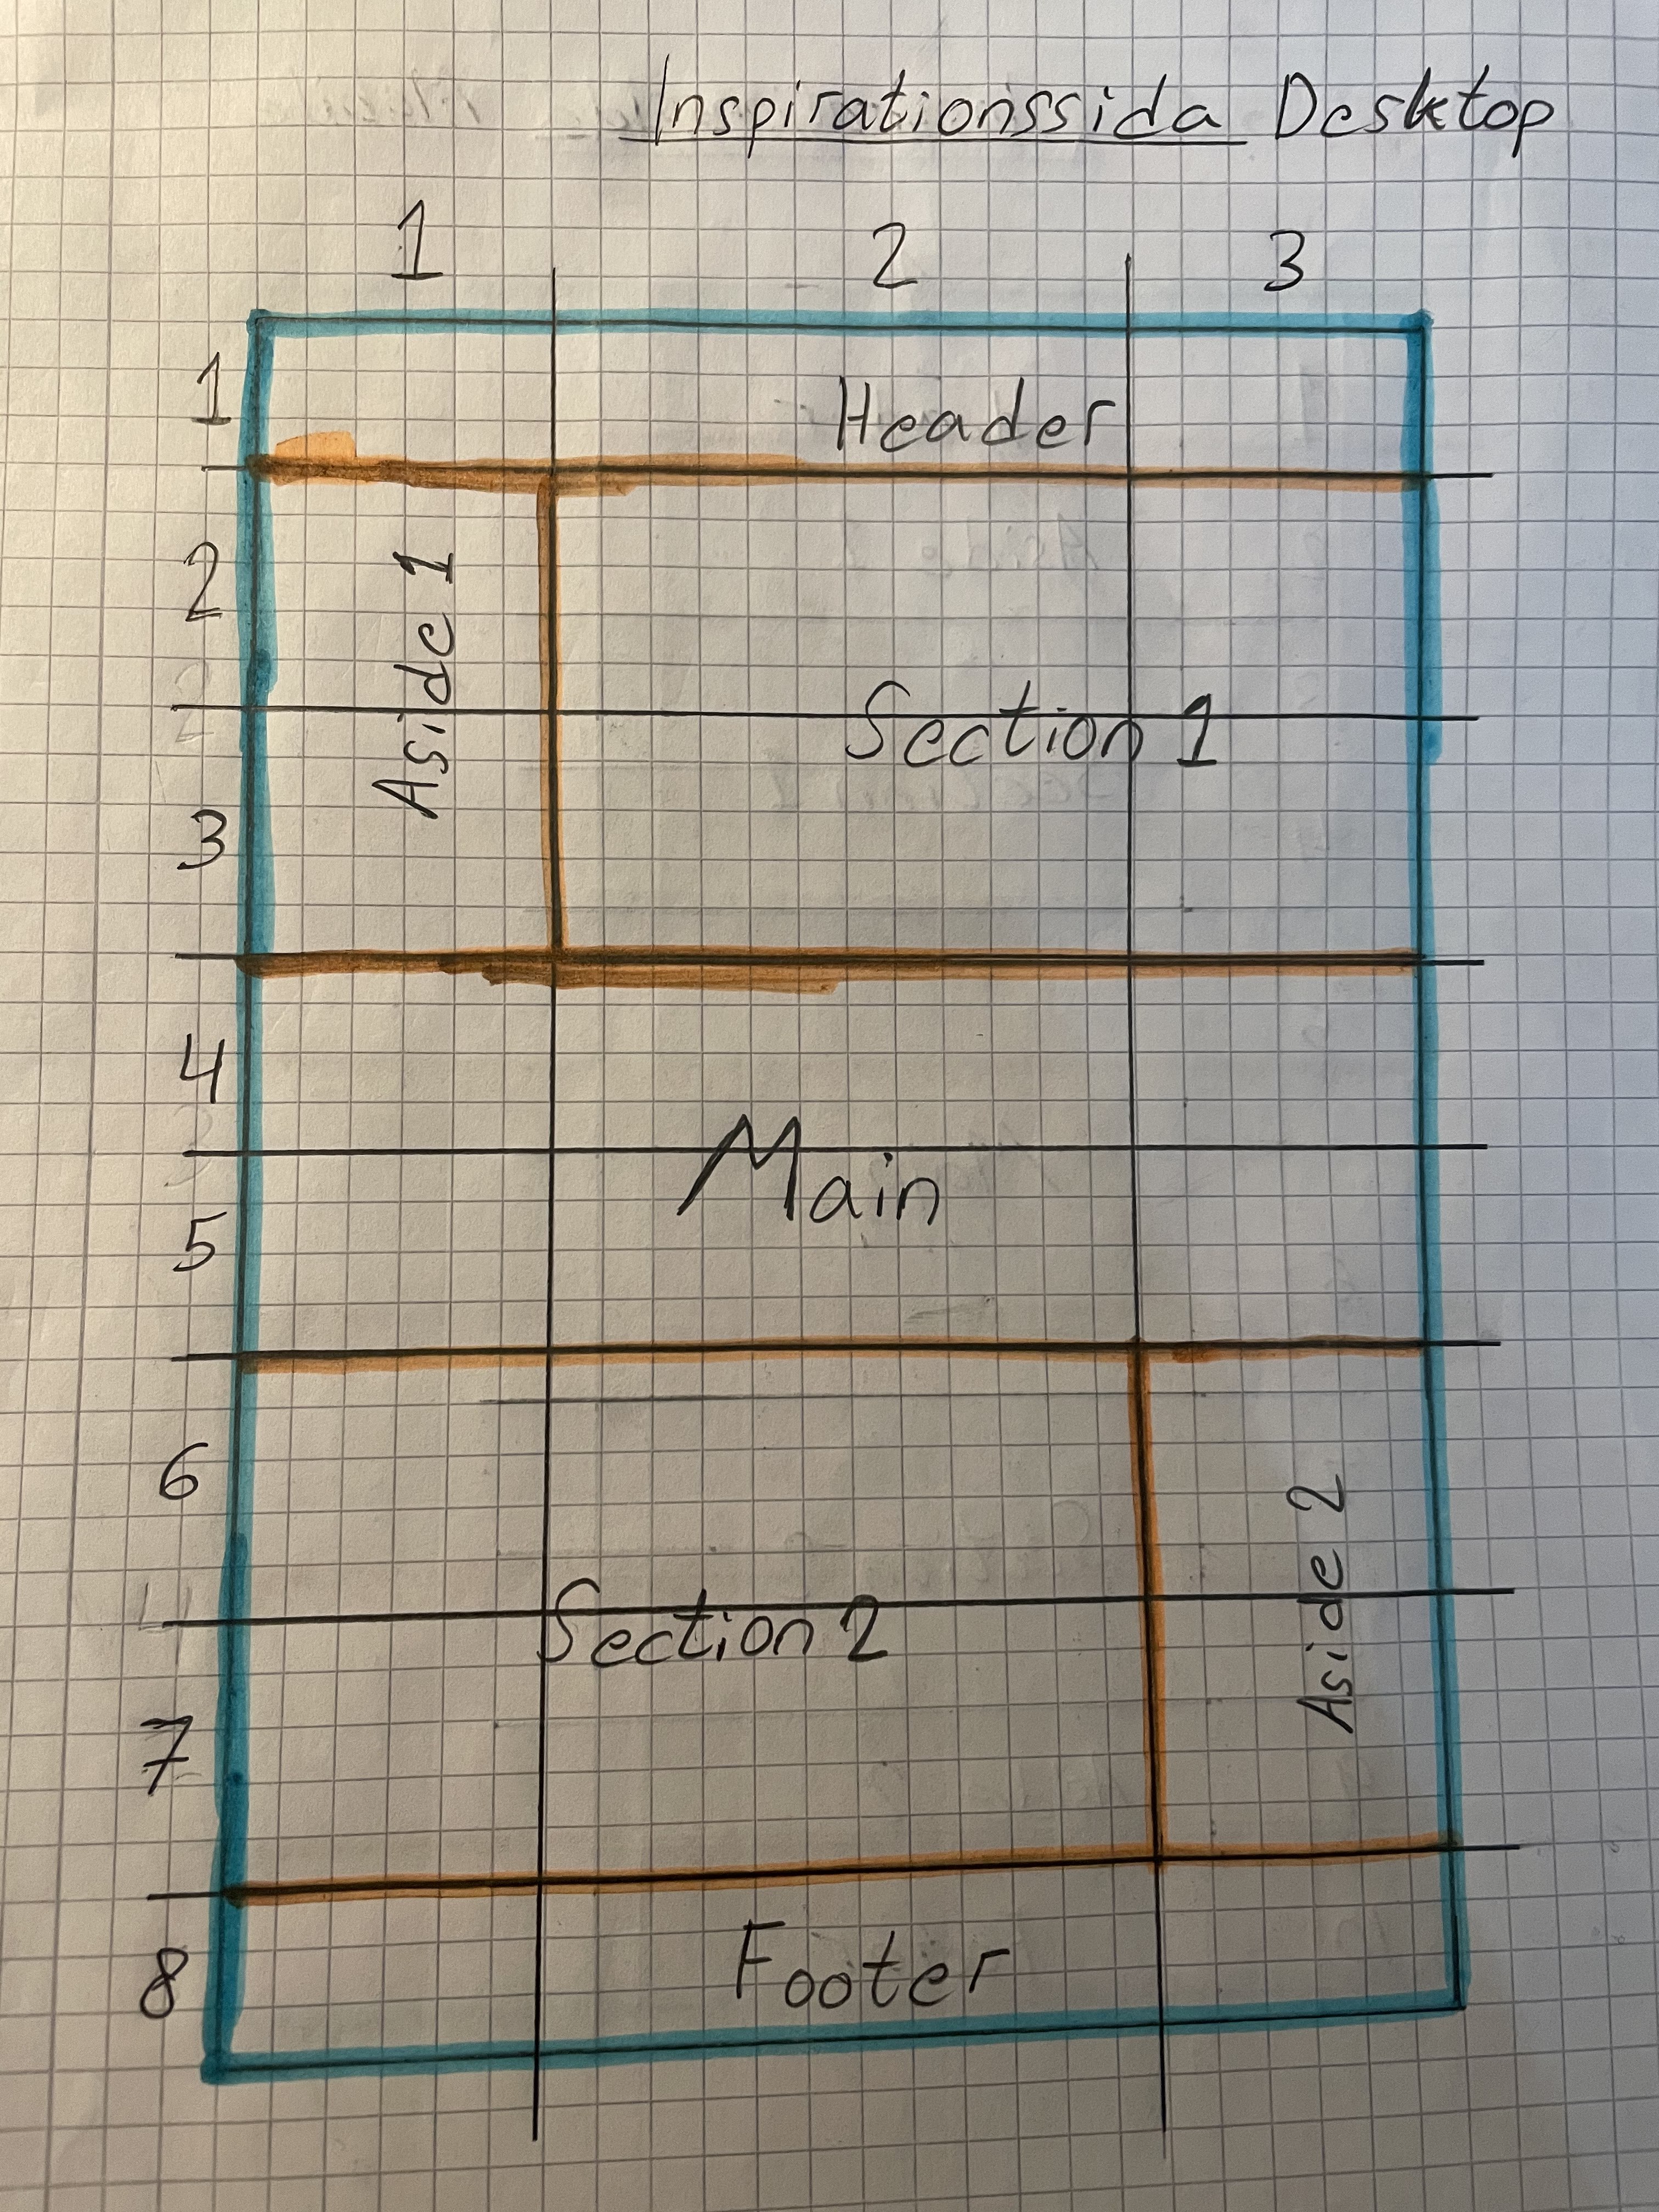 Inspirationssida Desktop
1 2 3
1
Header
2
Aside 1
Section 1
3
4
Main
5
6
Aside 2
Section 2
7
8
Footer